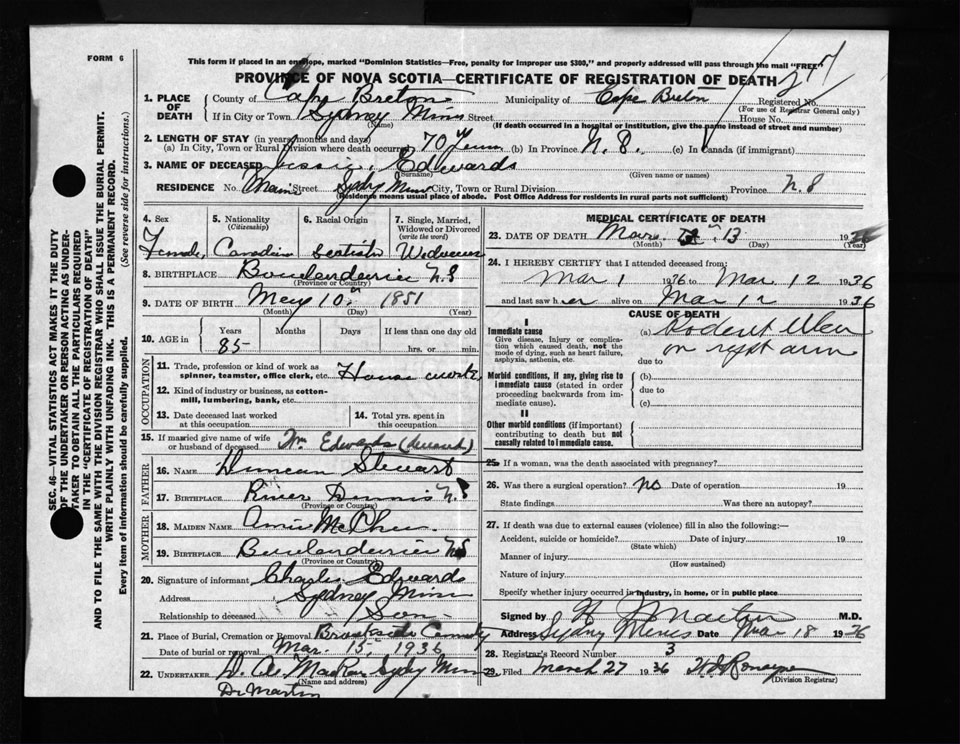 FORM 6
This form if placed in an envelope, marked "Dominion Statistics—Free, penalty for improper use $300," and properly addressed will pass through the mail "FREE"
PROVINCE OF NOVA SCOTIA—CERTIFICATE OF REGISTRATION OF DEATH
1. PLACE OF DEATH County of Cape Breton Municipality of Cape Breton Registered No.
(For use of Registrar General only)
If in City or Town Sydney Mines Street House No.
(Name) (If death occurred in a hospital or institution, give the name instead of street and number)
2. LENGTH OF STAY (in years, months and days)
(a) In City, Town or Rural Division where death occurred 70 Years (b) In Province N.S. (c) In Canada (if immigrant)
3. NAME OF DECEASED Edwards
(Surname) (Given name or names)
RESIDENCE No. Main Street Sydney Mines City, Town or Rural Division Province N.S
(Residence means usual place of abode. Post Office Address for residents in rural parts not sufficient)
4. Sex 5. Nationality 6. Racial Origin 7. Single, Married,
(Citizenship) Widowed or Divorced
(write the word)
Female Canadian Scotish
8. BIRTHPLACE Boularderie N.S
(Province or Country)
9. DATE OF BIRTH May 10 1851
(Month) (Day) (Year)
10. AGE in Years Months Days If less than one day old
85 hrs. or min.
OCCUPATION
11. Trade, profession or kind of work as
spinner, teamster, office clerk, etc. House work
12. Kind of industry or business, as cotton-
mill, lumbering, bank, etc.
13. Date deceased last worked at this occupation 14. Total yrs. spent in this occupation
15. If married give name of wife
or husband of deceased Wm Edwards (deceased)
FATHER
16. NAME Duncan Stewart
17. BIRTHPLACE River Dennis N.S
(Province or Country)
MOTHER
18. MAIDEN NAME McPhee
19. BIRTHPLACE Boularderie NS
(Province or Country)
20. Signature of informant Charles Edwards
Address Sydney Mines
Relationship to deceased Son
21. Place of Burial, Cremation or Removal Brookside Cemetery
Date of burial or removal Mar. 15, 1936
22. UNDERTAKER Sydney Mines
(Name and address)
Dr Martin
MEDICAL CERTIFICATE OF DEATH
23. DATE OF DEATH Mar 13 1936
(Month) (Day) (Year)
24. I HEREBY CERTIFY that I attended deceased from:
Mar 1 1936 to Mar 12 1936
and last saw her alive on Mar 12 1936
CAUSE OF DEATH
I
Immediate cause (a) Rodent Ulcer
Give disease, injury or complica-
tion which caused death, not the
mode of dying, such as heart failure,
asphyxia, asthenia, etc. on right arm
due to
Morbid conditions, if any, giving rise to
immediate cause (stated in order
proceeding backwards from im-
mediate cause). (b)
due to
(c)
II
Other morbid conditions (if important)
contributing to death but not
causally related to immediate cause.
25. If a woman, was the death associated with pregnancy?
26. Was there a surgical operation? no Date of operation 19
State findings Was there an autopsy?
27. If death was due to external causes (violence) fill in also the following:—
Accident, suicide or homicide? Date of injury 19
(State which)
Manner of injury
(How sustained)
Nature of injury
Specify whether injury occurred in industry, in home, or in public place
Signed by Martin M.D.
Address Sydney Mines Date Mar 18 1936
28. Registrar's Record Number 3
29. Filed March 27 1936
(Division Registrar)
SEC. 46—VITAL STATISTICS ACT MAKES IT THE DUTY
OF THE UNDERTAKER OR PERSON ACTING AS UNDER-
TAKER TO OBTAIN ALL THE PARTICULARS REQUIRED
IN THE "CERTIFICATE OF REGISTRATION OF DEATH"
AND TO FILE THE SAME WITH THE DIVISION REGISTRAR WHO SHALL ISSUE THE BURIAL PERMIT.
WRITE PLAINLY WITH UNFADING INK. THIS IS A PERMANENT RECORD.
Every item of information should be carefully supplied. (See reverse side for instructions.)